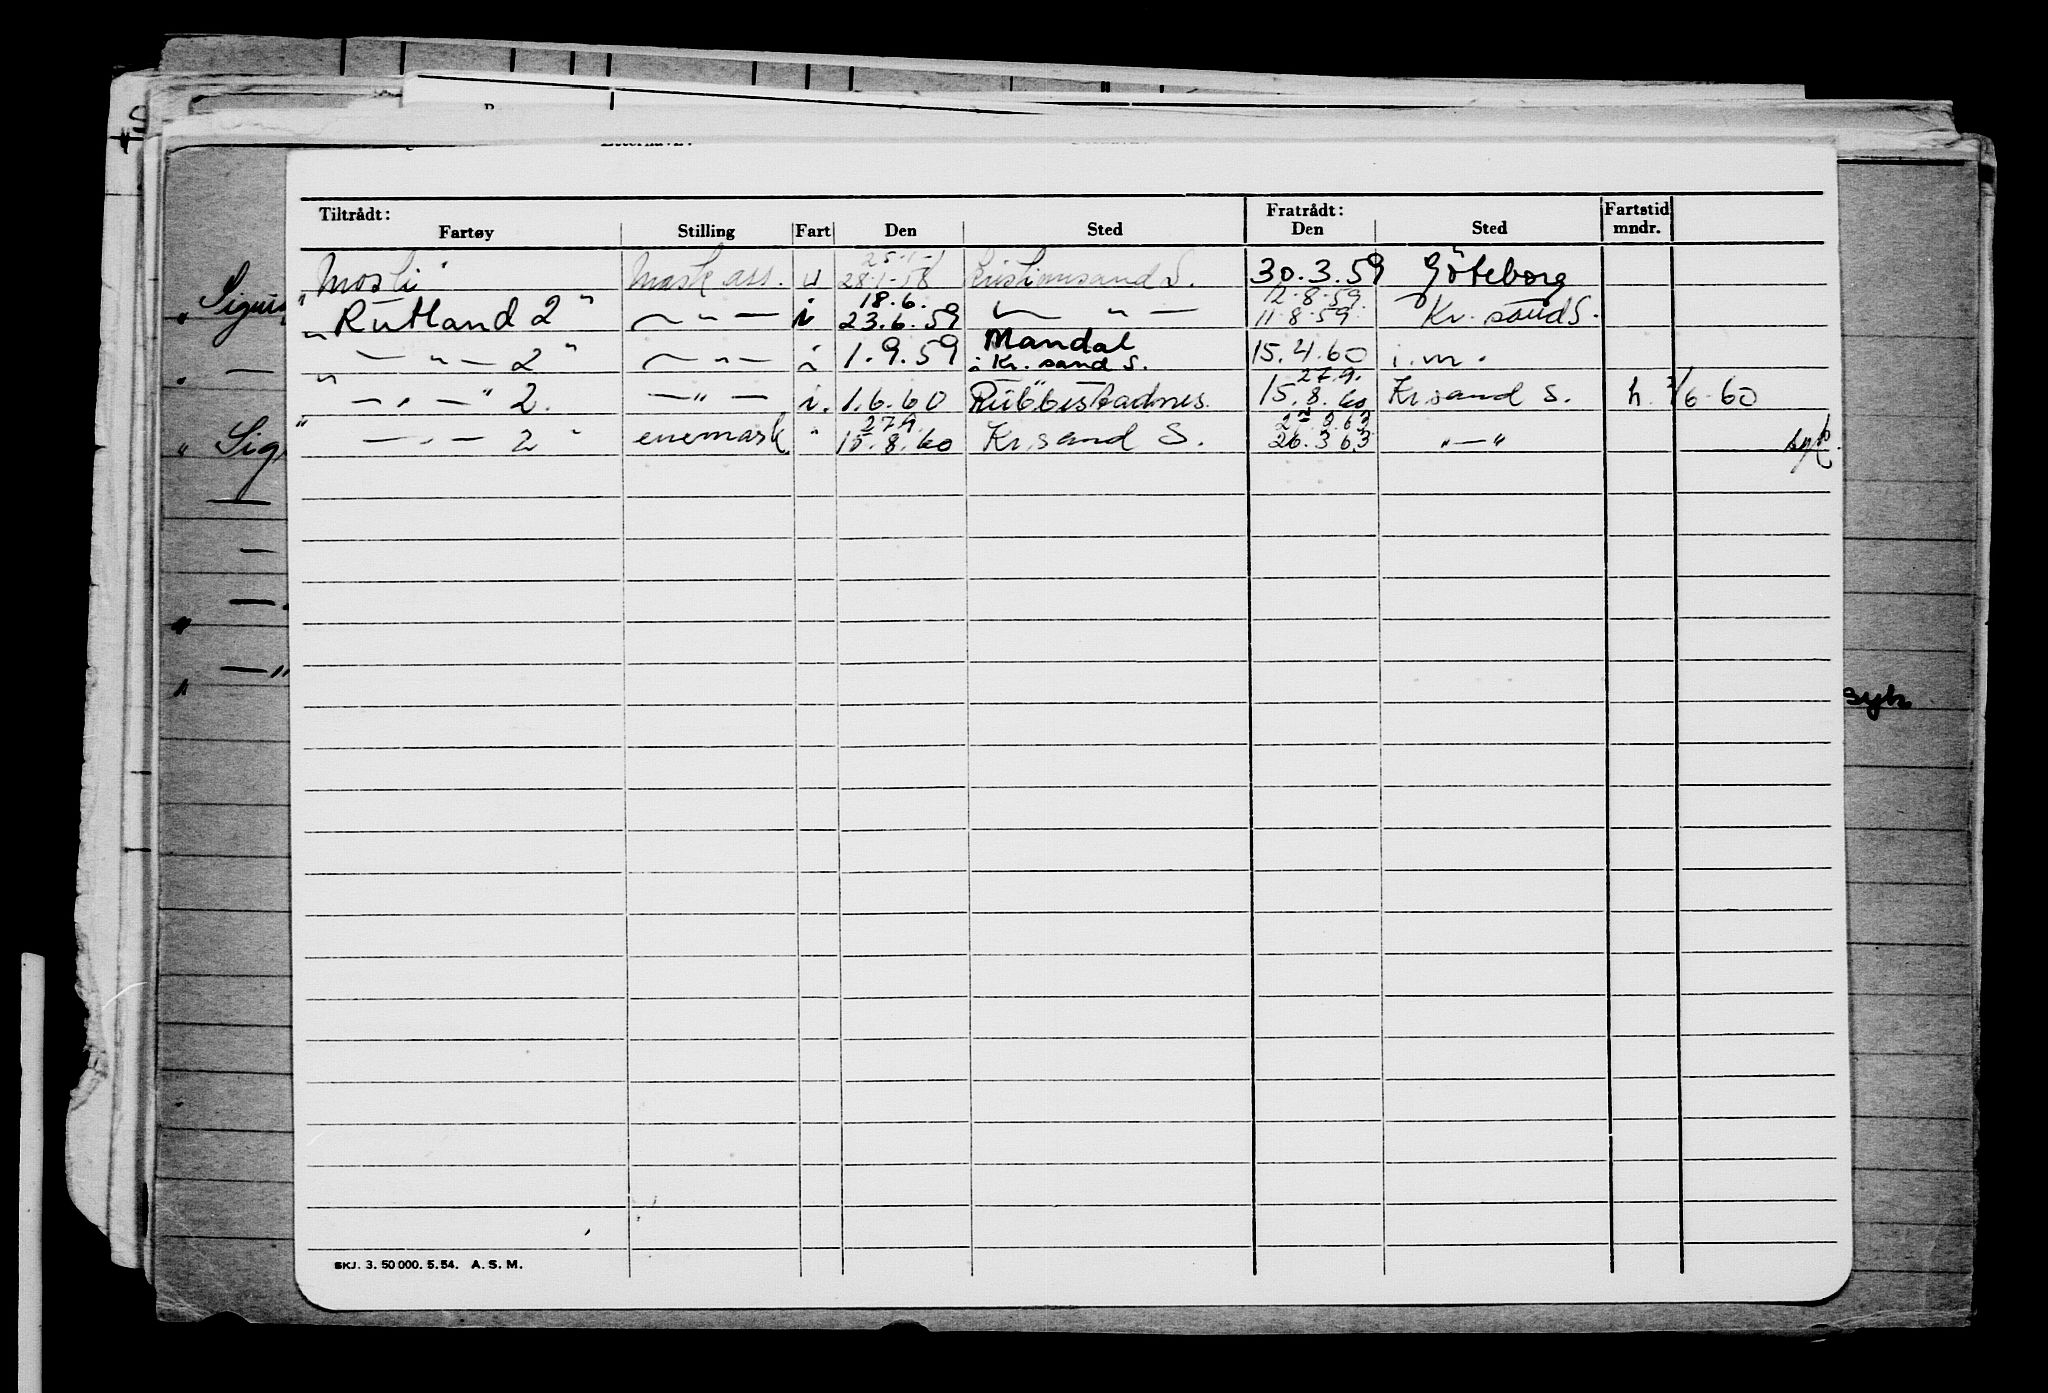 Tiltrådt: Fratrådt: Fartstid
Fartøy Stilling Fart Den Sted Den Sted mndr.
25-1-
"Mosli" Mask ass. u 28-1-58 Kristiansand S. 30.3.59 Göteborg
18.6. 12.8.59.
" Rutland 2 " — " — i 23.6.59 — " — 11.8.59. Kr. sand S.
Mandal
" — " — 2 " — " — i 1.9.59 i Kr. sand S. 15.4.60 i.m.
27.9.
— " — " 2. — " — i. 1.6.60 Rubbestadnes. 15.8.60 Kr.sand S. h. 1/6-60
27.9.
" — " — 2 " enemask " 15.8.60 Kr.sand S. 26.3.63 " — " syk.
Sig
syk
SKJ. 3. 50 000. 5.54. A. S. M.